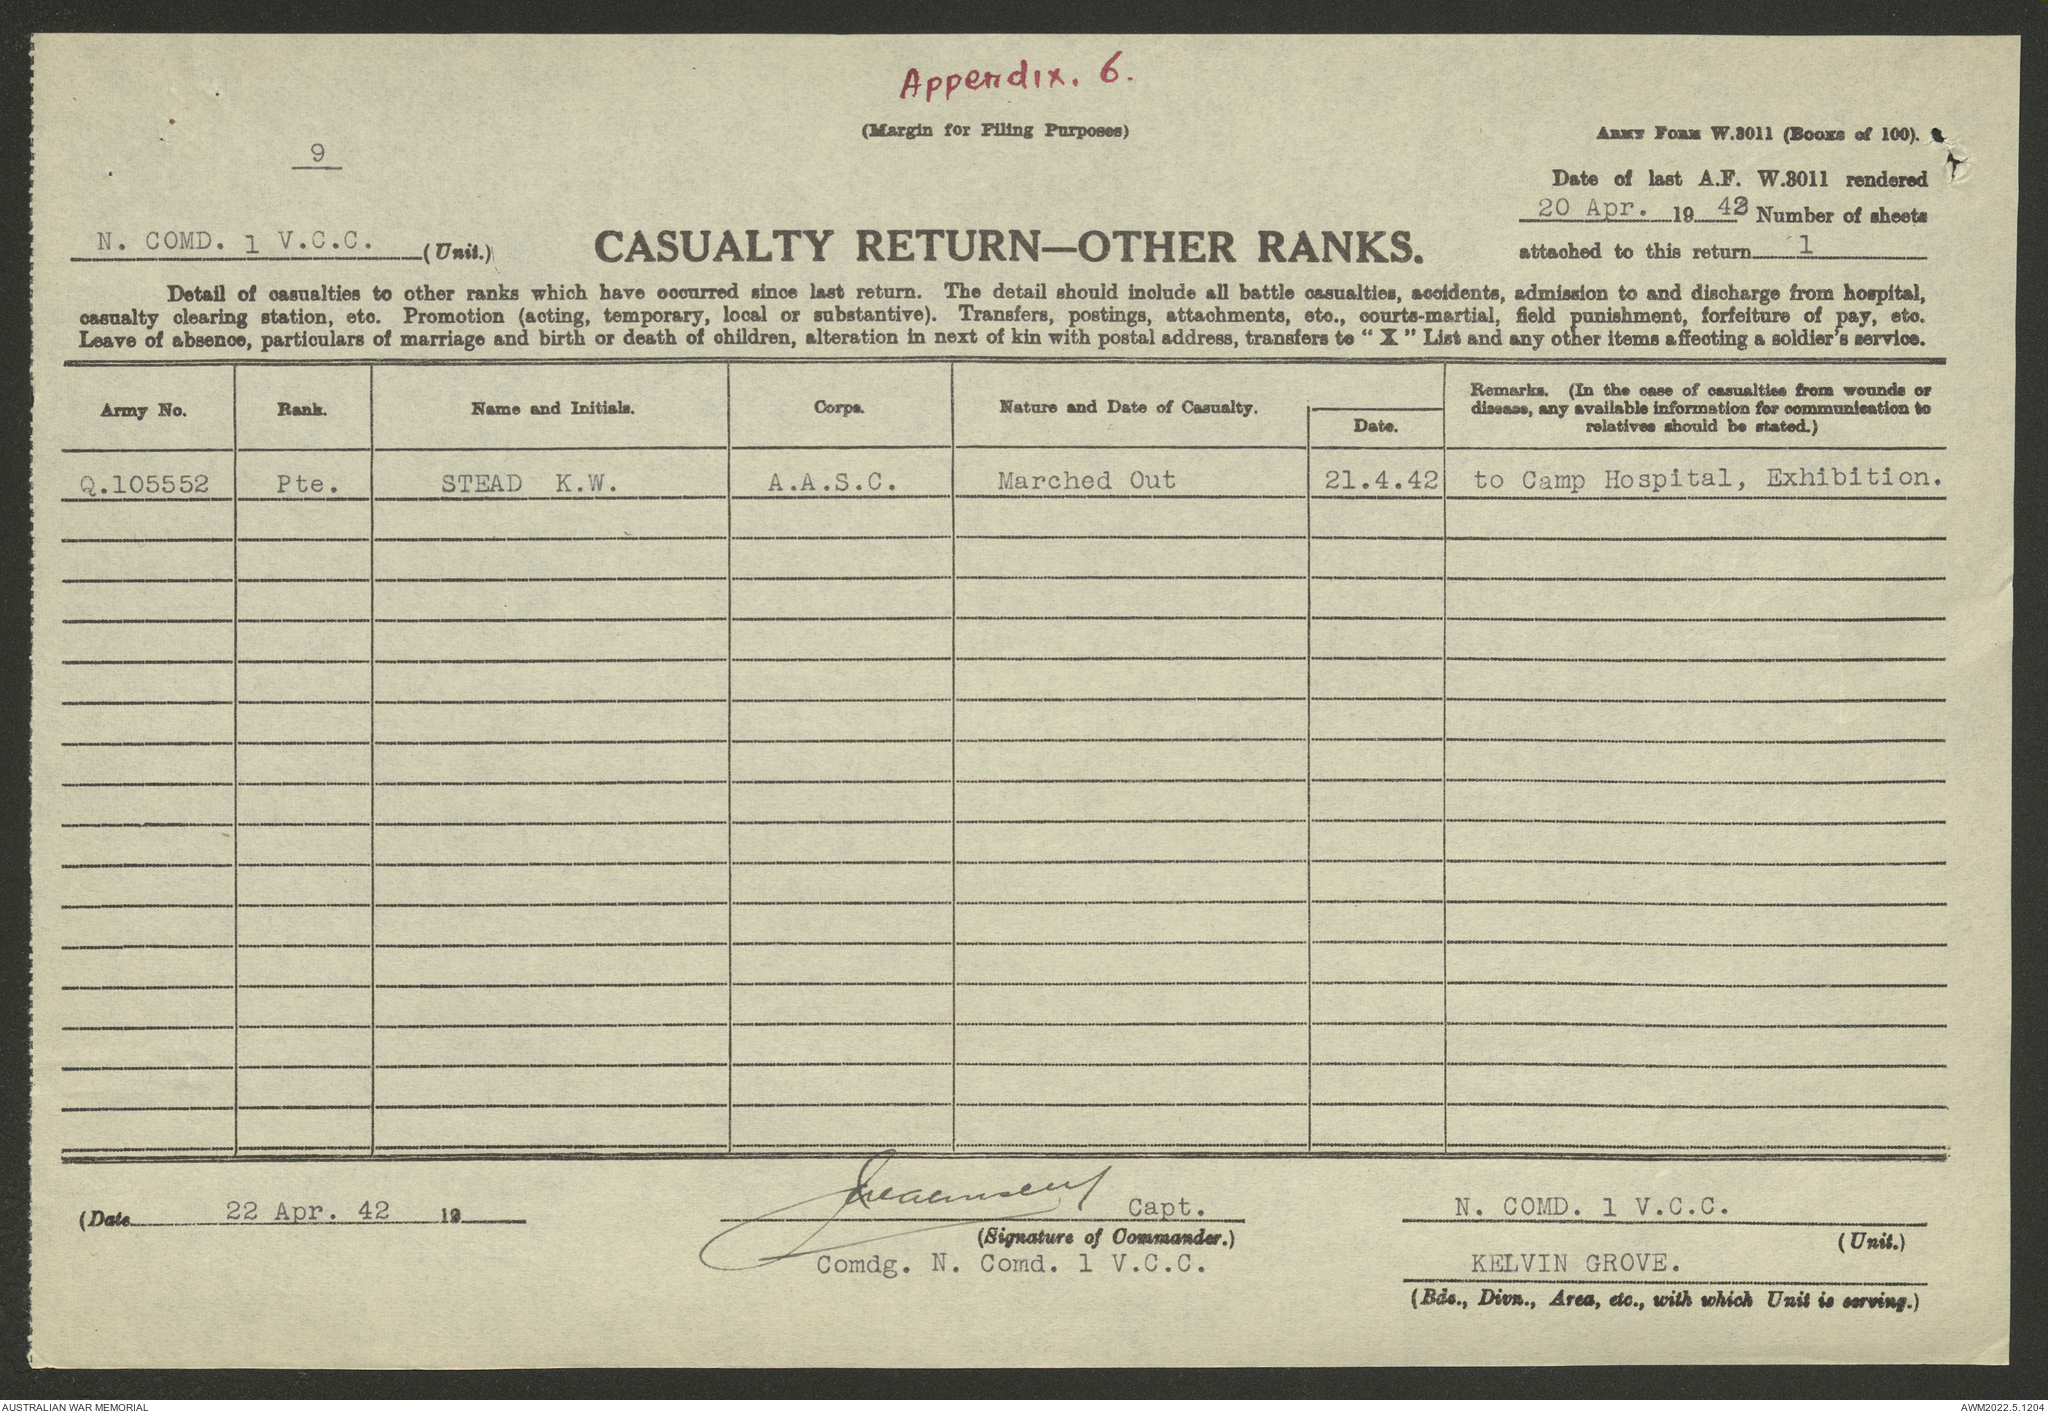 Appendix. 6.
(Margin for Filing Purposes)
ARMY FORM W.3011 (BOOKS of 100).
9
Date of last A.F. W.3011 rendered
20 Apr. 1942 Number of sheets
attached to this return 1
N. COMD. 1 V.C.C. (Unit.)
CASUALTY RETURN—OTHER RANKS.
Detail of casualties to other ranks which have occurred since last return. The detail should include all battle casualties, accidents, admission to and discharge from hospital,
casualty clearing station, etc. Promotion (acting, temporary, local or substantive). Transfers, postings, attachments, etc., courts-martial, field punishment, forfeiture of pay, etc.
Leave of absence, particulars of marriage and birth or death of children, alteration in next of kin with postal address, transfers to "X" List and any other items affecting a soldier's service.
Army No. Rank. Name and Initials. Corps. Nature and Date of Casualty. Date. Remarks. (In the case of casualties from wounds or
disease, any available information for communication to
relatives should be stated.)
Q.105552 Pte. STEAD K.W. A.A.S.C. Marched Out 21.4.42 to Camp Hospital, Exhibition.
(Date 22 Apr. 42 19
Capt.
(Signature of Commander.)
Comdg. N. Comd. 1 V.C.C.
N. COMD. 1 V.C.C.
(Unit.)
KELVIN GROVE.
(Bde., Divn., Area, etc., with which Unit is serving.)
AUSTRALIAN WAR MEMORIAL
AWM2022.5.1204